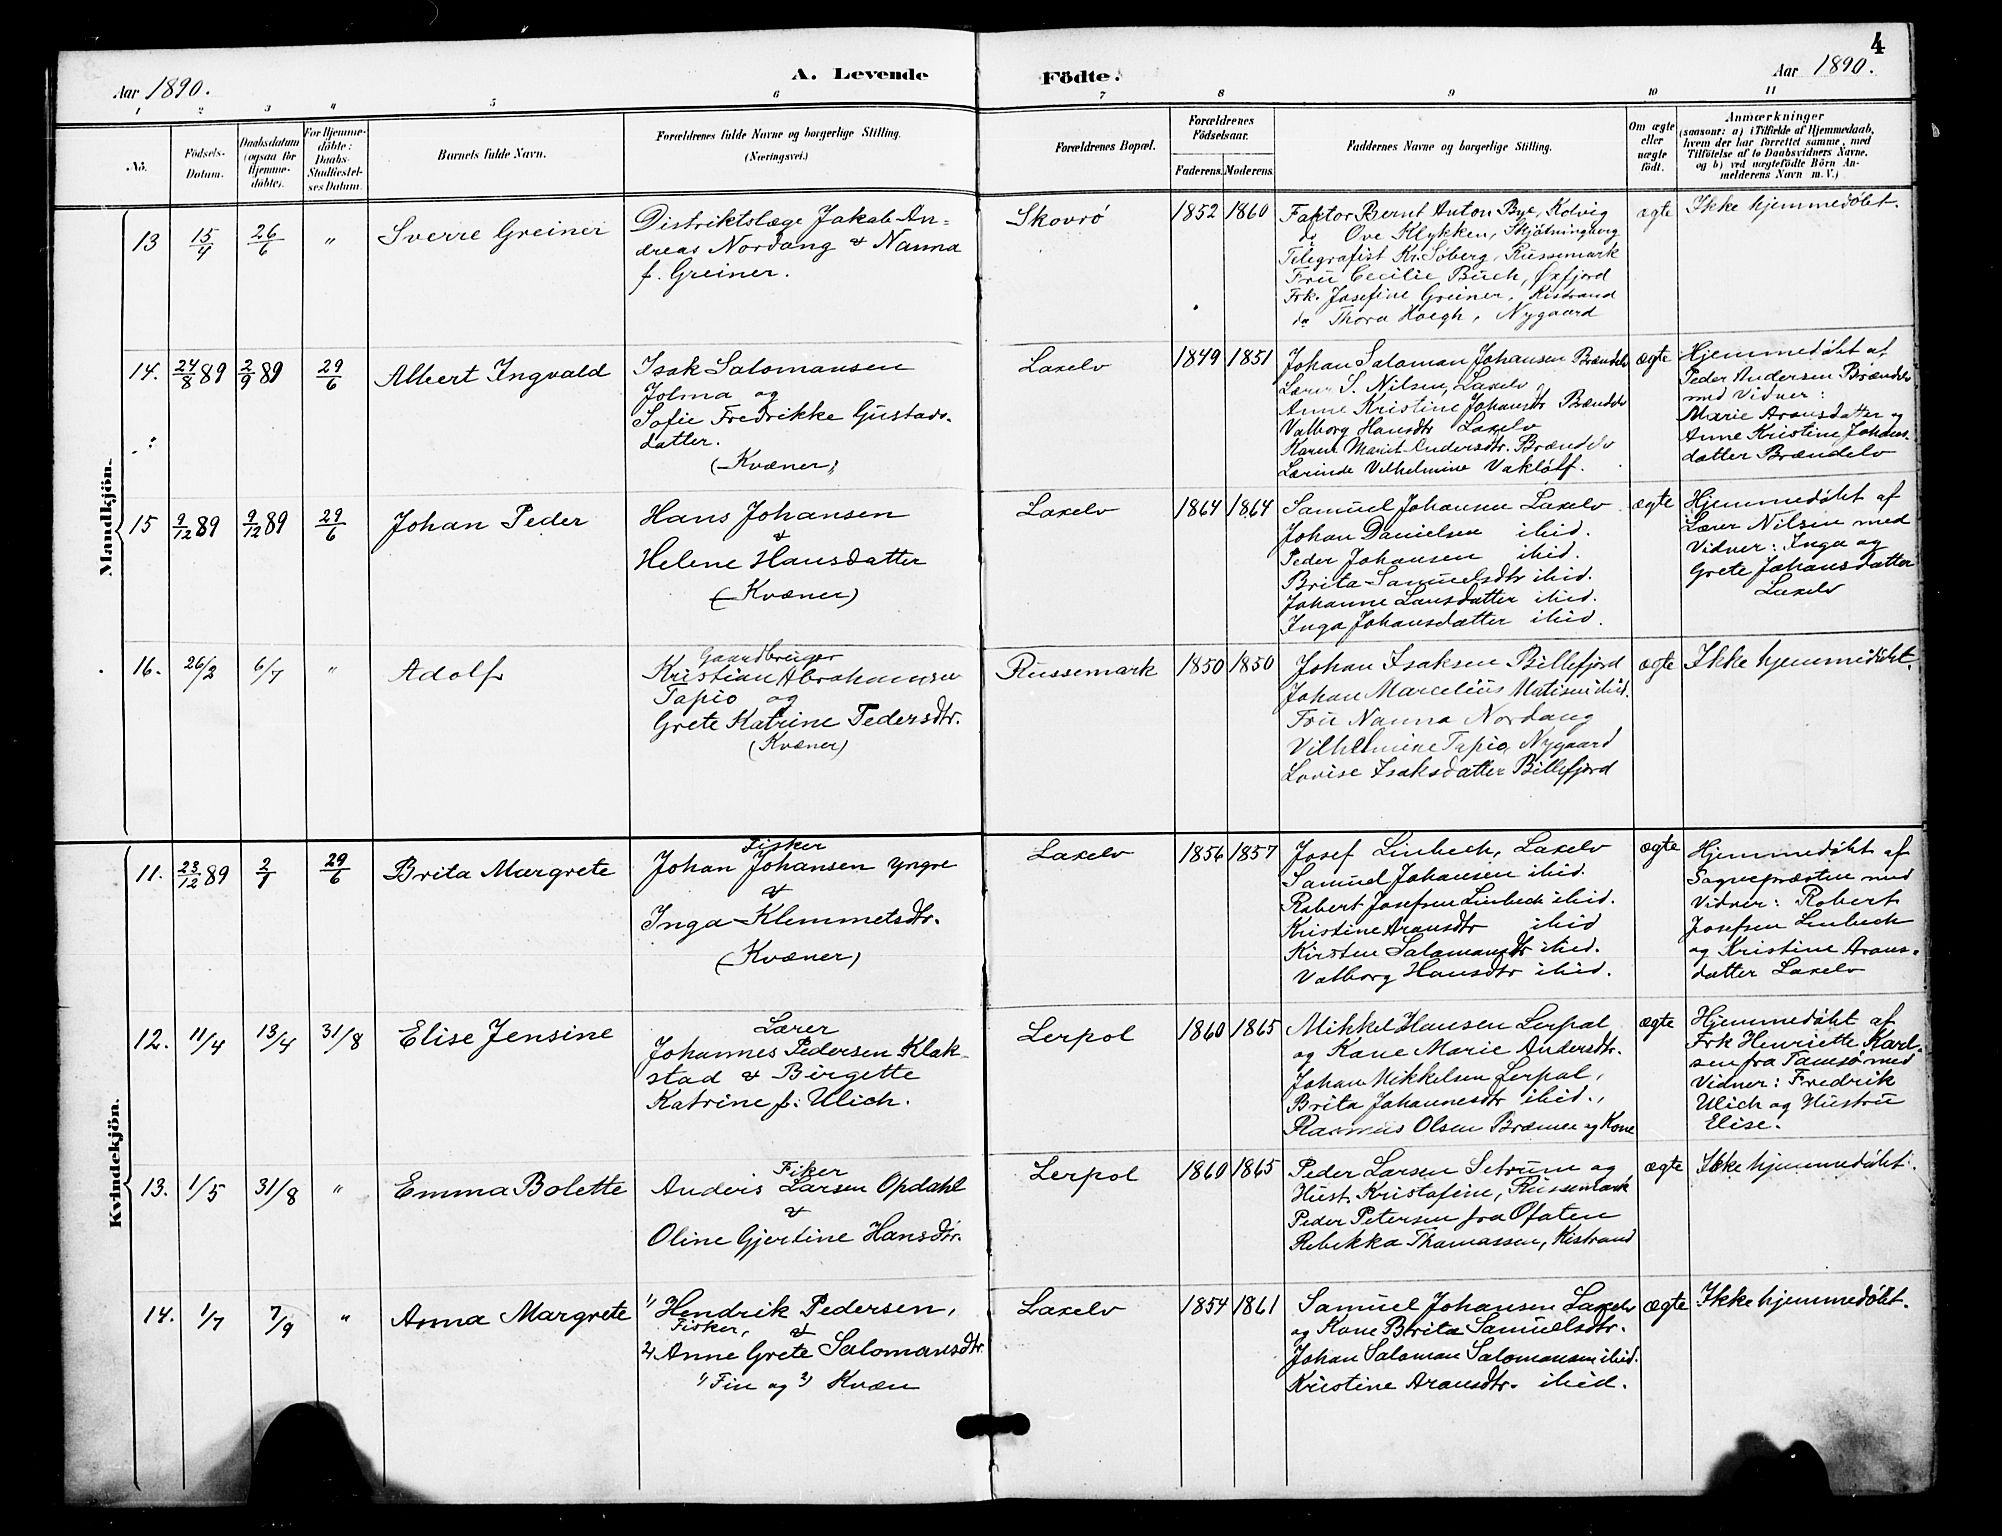 4
Aar 1890.
A. Levende Födte.
Aar 1890.
1 2 3 4 5 6 7 8 9 10 11
No.
Födsels-Datum.
Daabsdatum (ogsaa for Hjemme-döbte).
For Hjemme-döbte: Daabs-Stadfæstel-ses Datum.
Barnets fulde Navn.
Forældrenes fulde Navne og borgerlige Stilling.
(Næringsvei.)
Forældrenes Bopæl.
Forældrenes Födselsaar.
Faderens. Moderens.
Faddernes Navne og borgerlige Stilling.
Om ægte eller uægte födt.
Anmærkninger
(saasom: a) i Tilfælde af Hjemmedaab,
hvem der har forrettet samme, med
Tilföielse af to Daabsvidners Navne,
og b) ved uægtefödte Börn An-
melderens Navn m. V.)
Mandkjön.
13 15/4 26/6 "
Sverre Greiner
Distriktslæge Jakob An-
dreas Nordang & Nanna
f. Greiner.
Skovrø
1852 1860
Faktor Bernt Anton Bye, Kolvig
do Ove Klykken, Skjøtningberg
Telegrafist Kr. Søberg, Russemark
Fru Cecilie Buch, Øxfjord
Frk. Josefine Greiner, Kistrand
do Thora Hoegh, Nygaard
ægte
Ikke hjemmedøbt.
14. 24/8 89 2/9 89 29/6
Albert Ingvald
Isak Salomansen
Jolma og
Sofie Fredrikke Gustavs-
datter.
(Kvæner)
Laxelv
1849 1851
Johan Saloman Johansen Brændelv
Lærer S. Nilsen, Laxelv
Anne Kristine Johansdtr Brændelv
Valborg Hansdtr Laxelv
Karen Marit Andersdtr. Brændelv
Lærinde Vilhelmine
ægte
Hjemmedøbt af
Peder Andersen Brændelv
med Vidner:
Marie Aronsdatter og
Anne Kristine Johans-
datter Brændelv
15 9/12 89 9/12 89 29/6
Johan Peder
Hans Johansen
&
Helene Hansdatter
(Kvæner)
Laxelv
1864 1864
Samuel Johansen Laxelv
Johan Danielsen ibid.
Peder Johansen ibid.
Brita Samuelsdtr ibid.
Johanne Larsdatter ibid.
Inga Johansdatter ibid.
ægte
Hjemmedøbt af
Lærer Nilsen med
Vidner: Inga og
Grete Johansdatter
Laxelv
16. 26/2 6/7 "
Adolf
Gaardbruger
Kristian Abrahamsen
Tapio og
Grete Katrine Pedersdtr.
(Kvæner)
Russemark
1850 1850
Johan Isaksen Billefjord
Johan Marcelius Matisen ibid.
Fru Nanna Nordang
Vilhelmine Tapio, Nygaard
Lovise Isaksdatter Billefjord
ægte
Ikke hjemmedøbt.
Kvindekjön.
11. 23/12 89 2/1 29/6
Brita Margrete
Fisker
Johan Johansen yngre
&
Inga Klemmetsdtr.
(Kvæner)
Laxelv
1856 1857
Josef Linbech, Laxelv
Samuel Johansen ibid.
Robert Josefsen Linbech ibid.
Kristine Aronsdtr ibid
Kirsten Salomansdtr ibid.
Valborg Hansdtr ibid.
ægte
Hjemmedøbt af
Sognepræsten med
Vidner: Robert
Josefsen Linbech
og Kristine Arons-
datter Laxelv
12. 11/4 13/4 31/8
Elise Jensine
Lærer
Johannes Pedersen Klak-
stad & Birgette
Katrine f. Ulich.
Lerpol
1860 1865
Mikkel Hansen Lerpol
og Kone Marie Andersdtr.
Johan Mikkelsen Lerpol,
Brita Johannesdtr ibid.,
Rasmus Olsen Bræmer og Kone
ægte
Hjemmedøbt af
Frk Henriette Karl-
sen fra Tamsø med
Vidner: Fredrik
Ulich og Hustru
Elise.
13. 1/5 31/8 "
Emma Bolette
Fisker
Anders Larsen Opdahl
&
Oline Gjertine Hansdtr.
Lerpol
1860 1865
Peder Larsen Setrum og
Hust. Kristofine, Russemark
Peder Petersen fra Ofoten
Rebekka Thomassen, Kistrand
ægte
Ikke hjemmedøbt.
14. 1/7 7/9 "
Anna Margrete
1) Hendrik Pedersen,
Fisker, &
2) Anne Grete Salomansdtr.
1) Fin og 2) Kvæn
Laxelv
1854 1861
Samuel Johansen Laxelv
og Kone Brita Samuelsdtr.
Johan Saloman Salomansen ibid.
Kristine Aronsdtr. ibid.
ægte
Ikke hjemmedøbt.